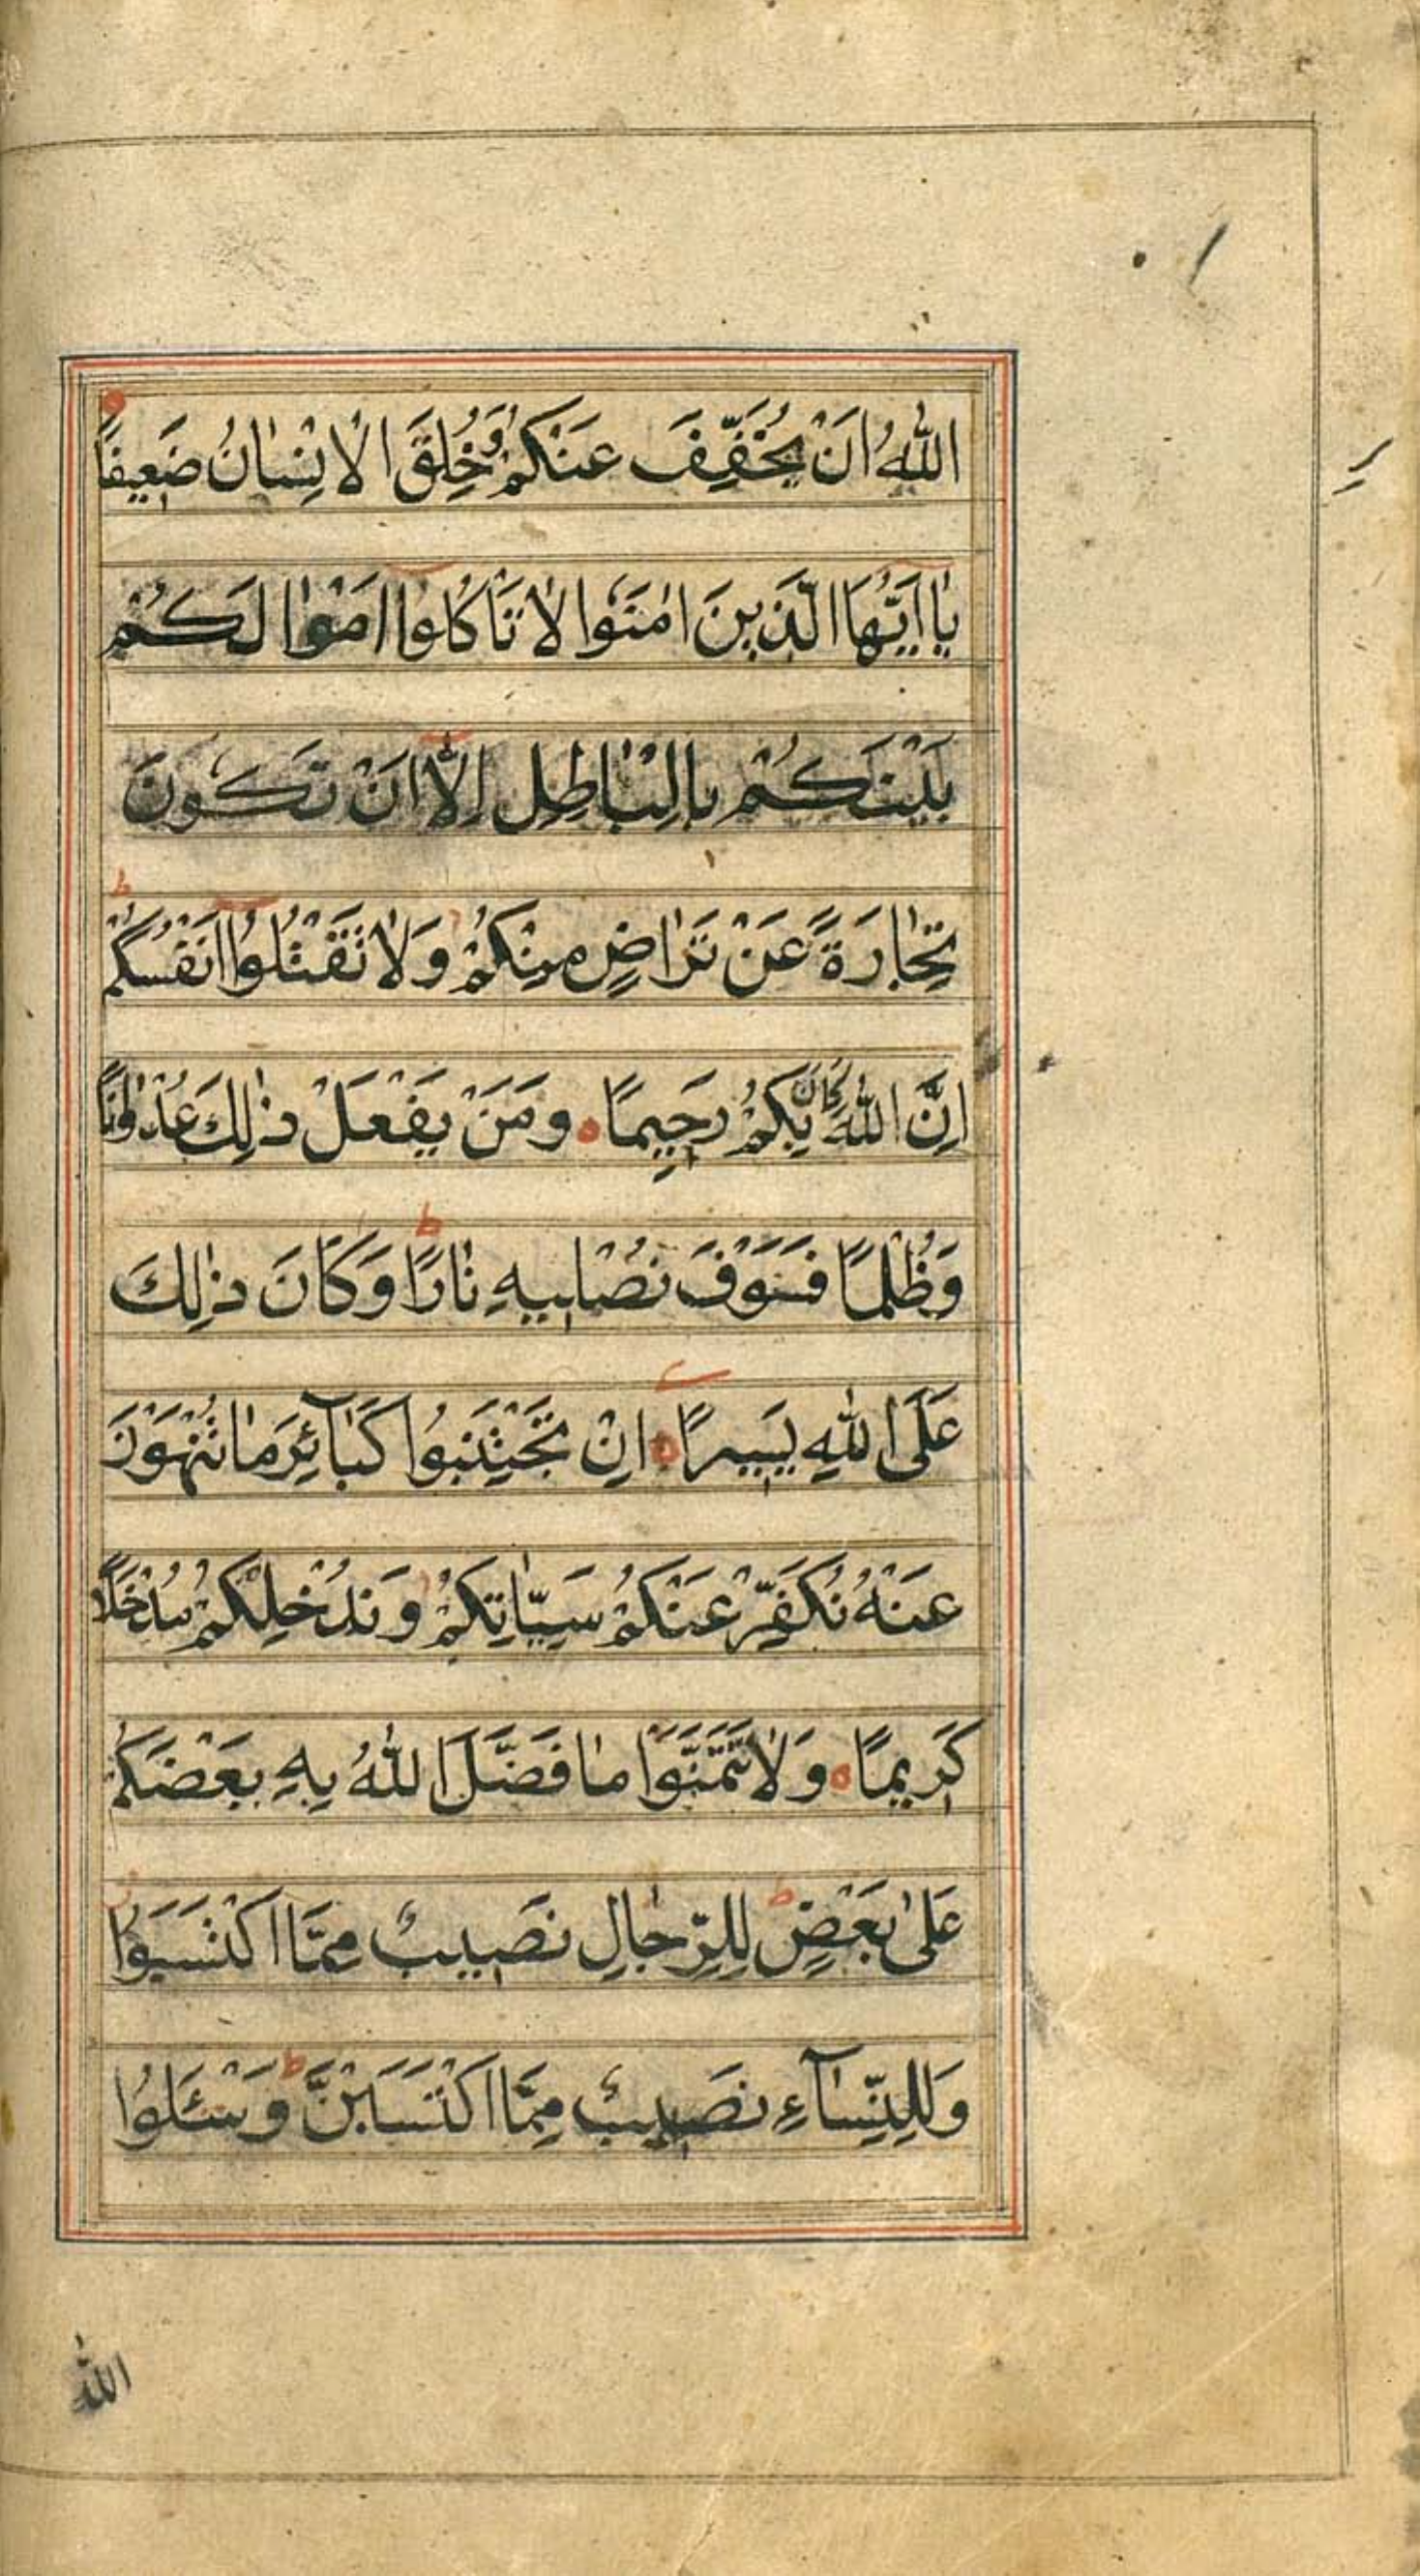 اللهُ اَنْ يُخَفِّفَ عَنْكُمْ وَخُلِقَ الْاِنْسَانُ ضَعِيفًا
يَا اَيُّهَا الَّذِينَ اٰمَنُوا لَا تَاْكُلُوا اَمْوَالَكُمْ
بَيْنَكُمْ بِالْبَاطِلِ اِلَّا اَنْ تَكُونَ
تِجَارَةً عَنْ تَرَاضٍ مِنْكُمْ وَلَا تَقْتُلُوا اَنْفُسَكُمْ ط
اِنَّ اللهَ كَانَ بِكُمْ رَحِيمًا ه وَمَنْ يَفْعَلْ ذٰلِكَ عُدْوَانًا
وَظُلْمًا فَسَوْفَ نُصْلِيهِ نَارًا ط وَكَانَ ذٰلِكَ
عَلَى اللهِ يَسِيرًا ه اِنْ تَجْتَنِبُوا كَبَآئِرَ مَا تُنْهَوْنَ
عَنْهُ نُكَفِّرْ عَنْكُمْ سَيِّاٰتِكُمْ وَنُدْخِلْكُمْ مُدْخَلًا
كَرِيمًا ه وَلَا تَتَمَنَّوْا مَا فَضَّلَ اللهُ بِهِ بَعْضَكُمْ
عَلٰى بَعْضٍ ط لِلرِّجَالِ نَصِيبٌ مِمَّا اكْتَسَبُوا
وَلِلنِّسَآءِ نَصِيبٌ مِمَّا اكْتَسَبْنَ ط وَسْئَلُوا
الله